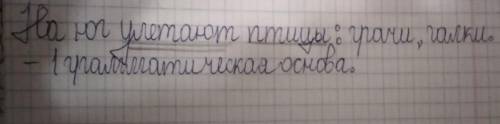 На юг улетают птицы: грачи, галки.
- 1 грамматическая основа.